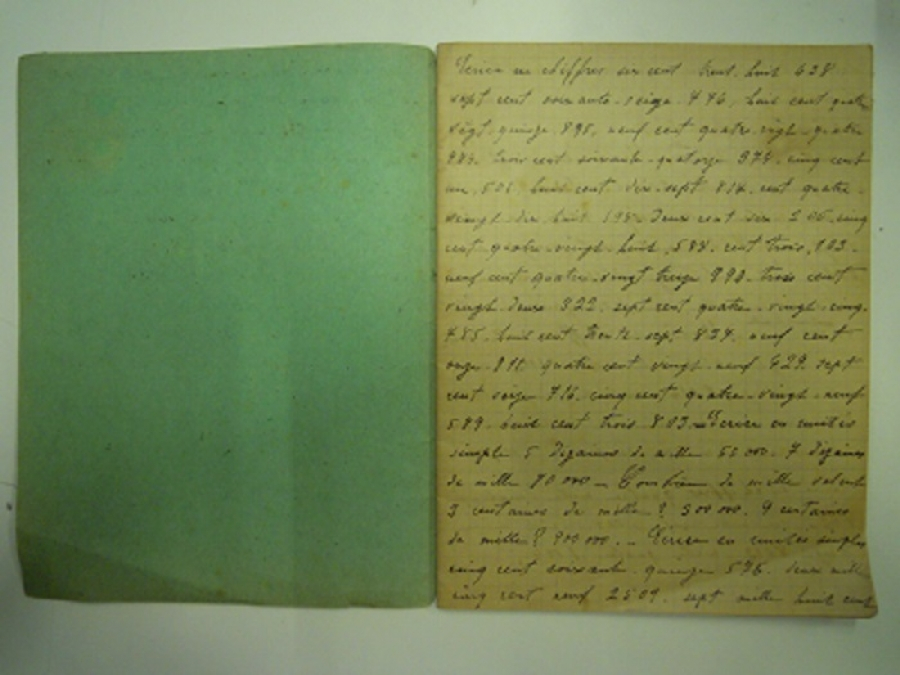 Ecrire en chiffres six cent trent huit 638
sept cent soixante-seize 776, huit cent quatre
vigt-quinze 895, neuf cent quatre-vingt-quatre
984. trois cent soixante-quatorze 374. cinq cent
un 501 huit cent dix-sept 817. cent quatre-
vingt dix huit 198. Deux cent six 206. cinq
cent quatre-vingt-huit, 588. cent trois, 103.
neuf cent quatre-vingt treize 993. trois cent
vingt-deux 322. sept cent quatre-vingt-cinq.
785. huit cent trente-sept 837. neuf cent
onze 911 quatre cent vingt-neuf 429. sept
cent seize 716. cinq cent quatre-vingt-neuf
589. huit cent trois 803. Ecrire en unités
simple 5 dizaines de mille 50 000. 7 dizaines
de mille 70 000 – Combien de mille valent
3 centaines de mille ? 300 000. 9 centaines
de mille ? 900 000. – Ecrire en unités simples
cinq cent soixante-quinze 575. deux mille
cinq cent neuf 2509. sept mille huit cent